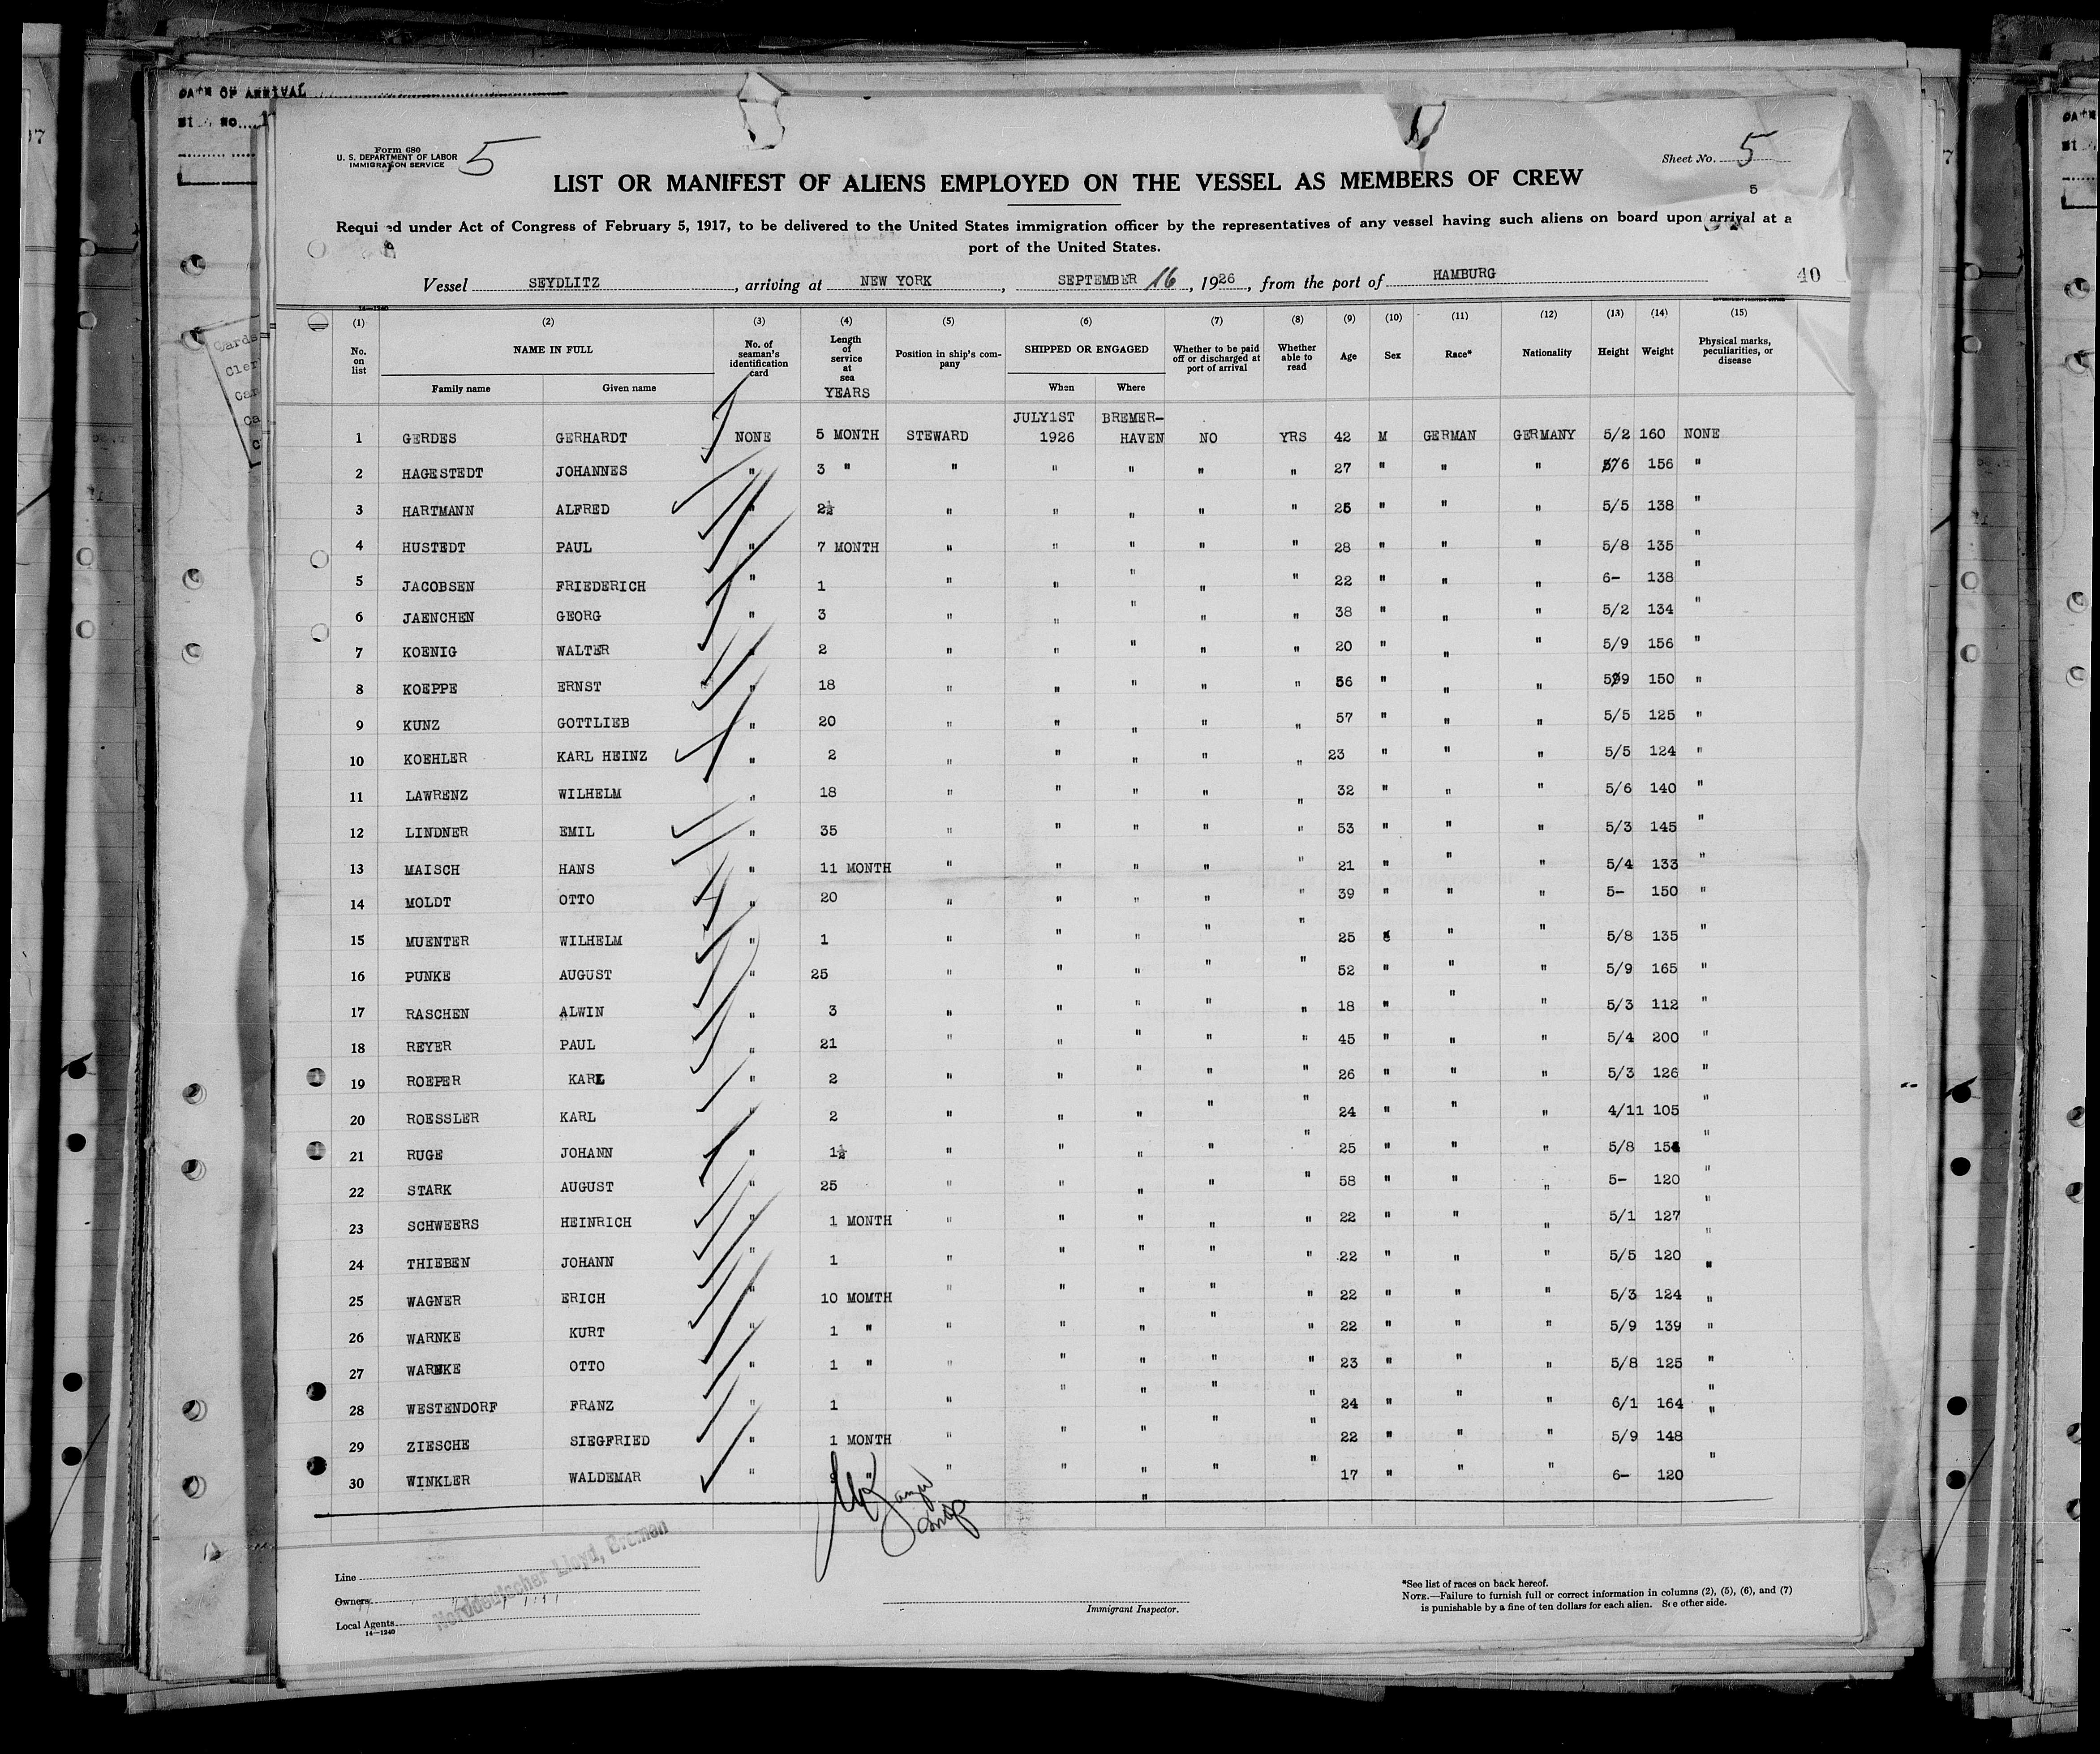 DATE OF ARRIVAL
Form 680
U. S. DEPARTMENT OF LABOR
IMMIGRATION SERVICE
5
Sheet No. 5
5
LIST OR MANIFEST OF ALIENS EMPLOYED ON THE VESSEL AS MEMBERS OF CREW
Required under Act of Congress of February 5, 1917, to be delivered to the United States immigration officer by the representatives of any vessel having such aliens on board upon arrival at a
port of the United States.
Vessel SEYDLITZ, arriving at NEW YORK, SEPTEMBER 16, 1926, from the port of HAMBURG
40
(1) (2) (3) (4) (5) (6) (7) (8) (9) (10) (11) (12) (13) (14) (15)
No. on list NAME IN FULL Family name Given name No. of seaman's identification card Length of service at sea YEARS Position in ship's company SHIPPED OR ENGAGED When Where Whether to be paid off or discharged at port of arrival Whether able to read Age Sex Race* Nationality Height Weight Physical marks, peculiarities, or disease
JULY1ST BREMER-
1 GERDES GERHARDT NONE 5 MONTH STEWARD 1926 HAVEN NO YRS 42 M GERMAN GERMANY 5/2 160 NONE
2 HAGESTEDT JOHANNES " 3 " " " " " " 27 " " " 5/6 156 "
3 HARTMANN ALFRED " 2½ " " " " " 25 " " " 5/5 138 "
4 HUSTEDT PAUL " 7 MONTH " " " " " 28 " " " 5/8 135 "
5 JACOBSEN FRIEDERICH " 1 " " " " " 22 " " " 6- 138 "
6 JAENCHEN GEORG " 3 " " " " " 38 " " " 5/2 134 "
7 KOENIG WALTER " 2 " " " " " 20 " " " 5/9 156 "
8 KOEPPE ERNST " 18 " " " " " 56 " " " 5/9 150 "
9 KUNZ GOTTLIEB " 20 " " " " " 57 " " " 5/5 125 "
10 KOEHLER KARL HEINZ " 2 " " " " " 23 " " " 5/5 124 "
11 LAWRENZ WILHELM " 18 " " " " " 32 " " " 5/6 140 "
12 LINDNER EMIL " 35 " " " " " 53 " " " 5/3 145 "
13 MAISCH HANS " 11 MONTH " " " " " 21 " " " 5/4 133 "
14 MOLDT OTTO " 20 " " " " " 39 " " " 5- 150 "
15 MUENTER WILHELM " 1 " " " " " 25 " " 5/8 135 "
16 PUNKE AUGUST " 25 " " " " " 52 " " " 5/9 165 "
17 RASCHEN ALWIN " 3 " " " " " 18 " " " 5/3 112 "
18 REYER PAUL " 21 " " " " " 45 " " " 5/4 200 "
19 ROEPER KARL " 2 " " " " " 26 " " " 5/3 126 "
20 ROESSLER KARL " 2 " " " " " 24 " " " 4/11 105 "
21 RUGE JOHANN " 1½ " " " " " 25 " " " 5/8 "
22 STARK AUGUST " 25 " " " " " 58 " " " 5- 120 "
23 SCHWEERS HEINRICH " 1 MONTH " " " " " 22 " " " 5/1 127 "
24 THIEBEN JOHANN " 1 " " " " " 22 " " " 5/5 120 "
25 WAGNER ERICH " 10 MOMTH " " " " 22 " " " 5/3 124 "
26 WARNKE KURT " 1 " " " " " " 22 " " " 5/9 139 "
27 WARNKE OTTO " 1 " " " " " " 23 " " " 5/8 125 "
28 WESTENDORF FRANZ " 1 " " " " " 24 " " " 6/1 164 "
29 ZIESCHE SIEGFRIED " 1 MONTH " " " " " 22 " " " 5/9 148 "
30 WINKLER WALDEMAR " " " " " " " 17 " " " 6- 120 "
Line
Owners
Local Agents
14—1240
Norddeutscher Lloyd, Bremen
Immigrant Inspector.
*See list of races on back hereof.
NOTE.—Failure to furnish full or correct information in columns (2), (5), (6), and (7)
is punishable by a fine of ten dollars for each alien. See other side.